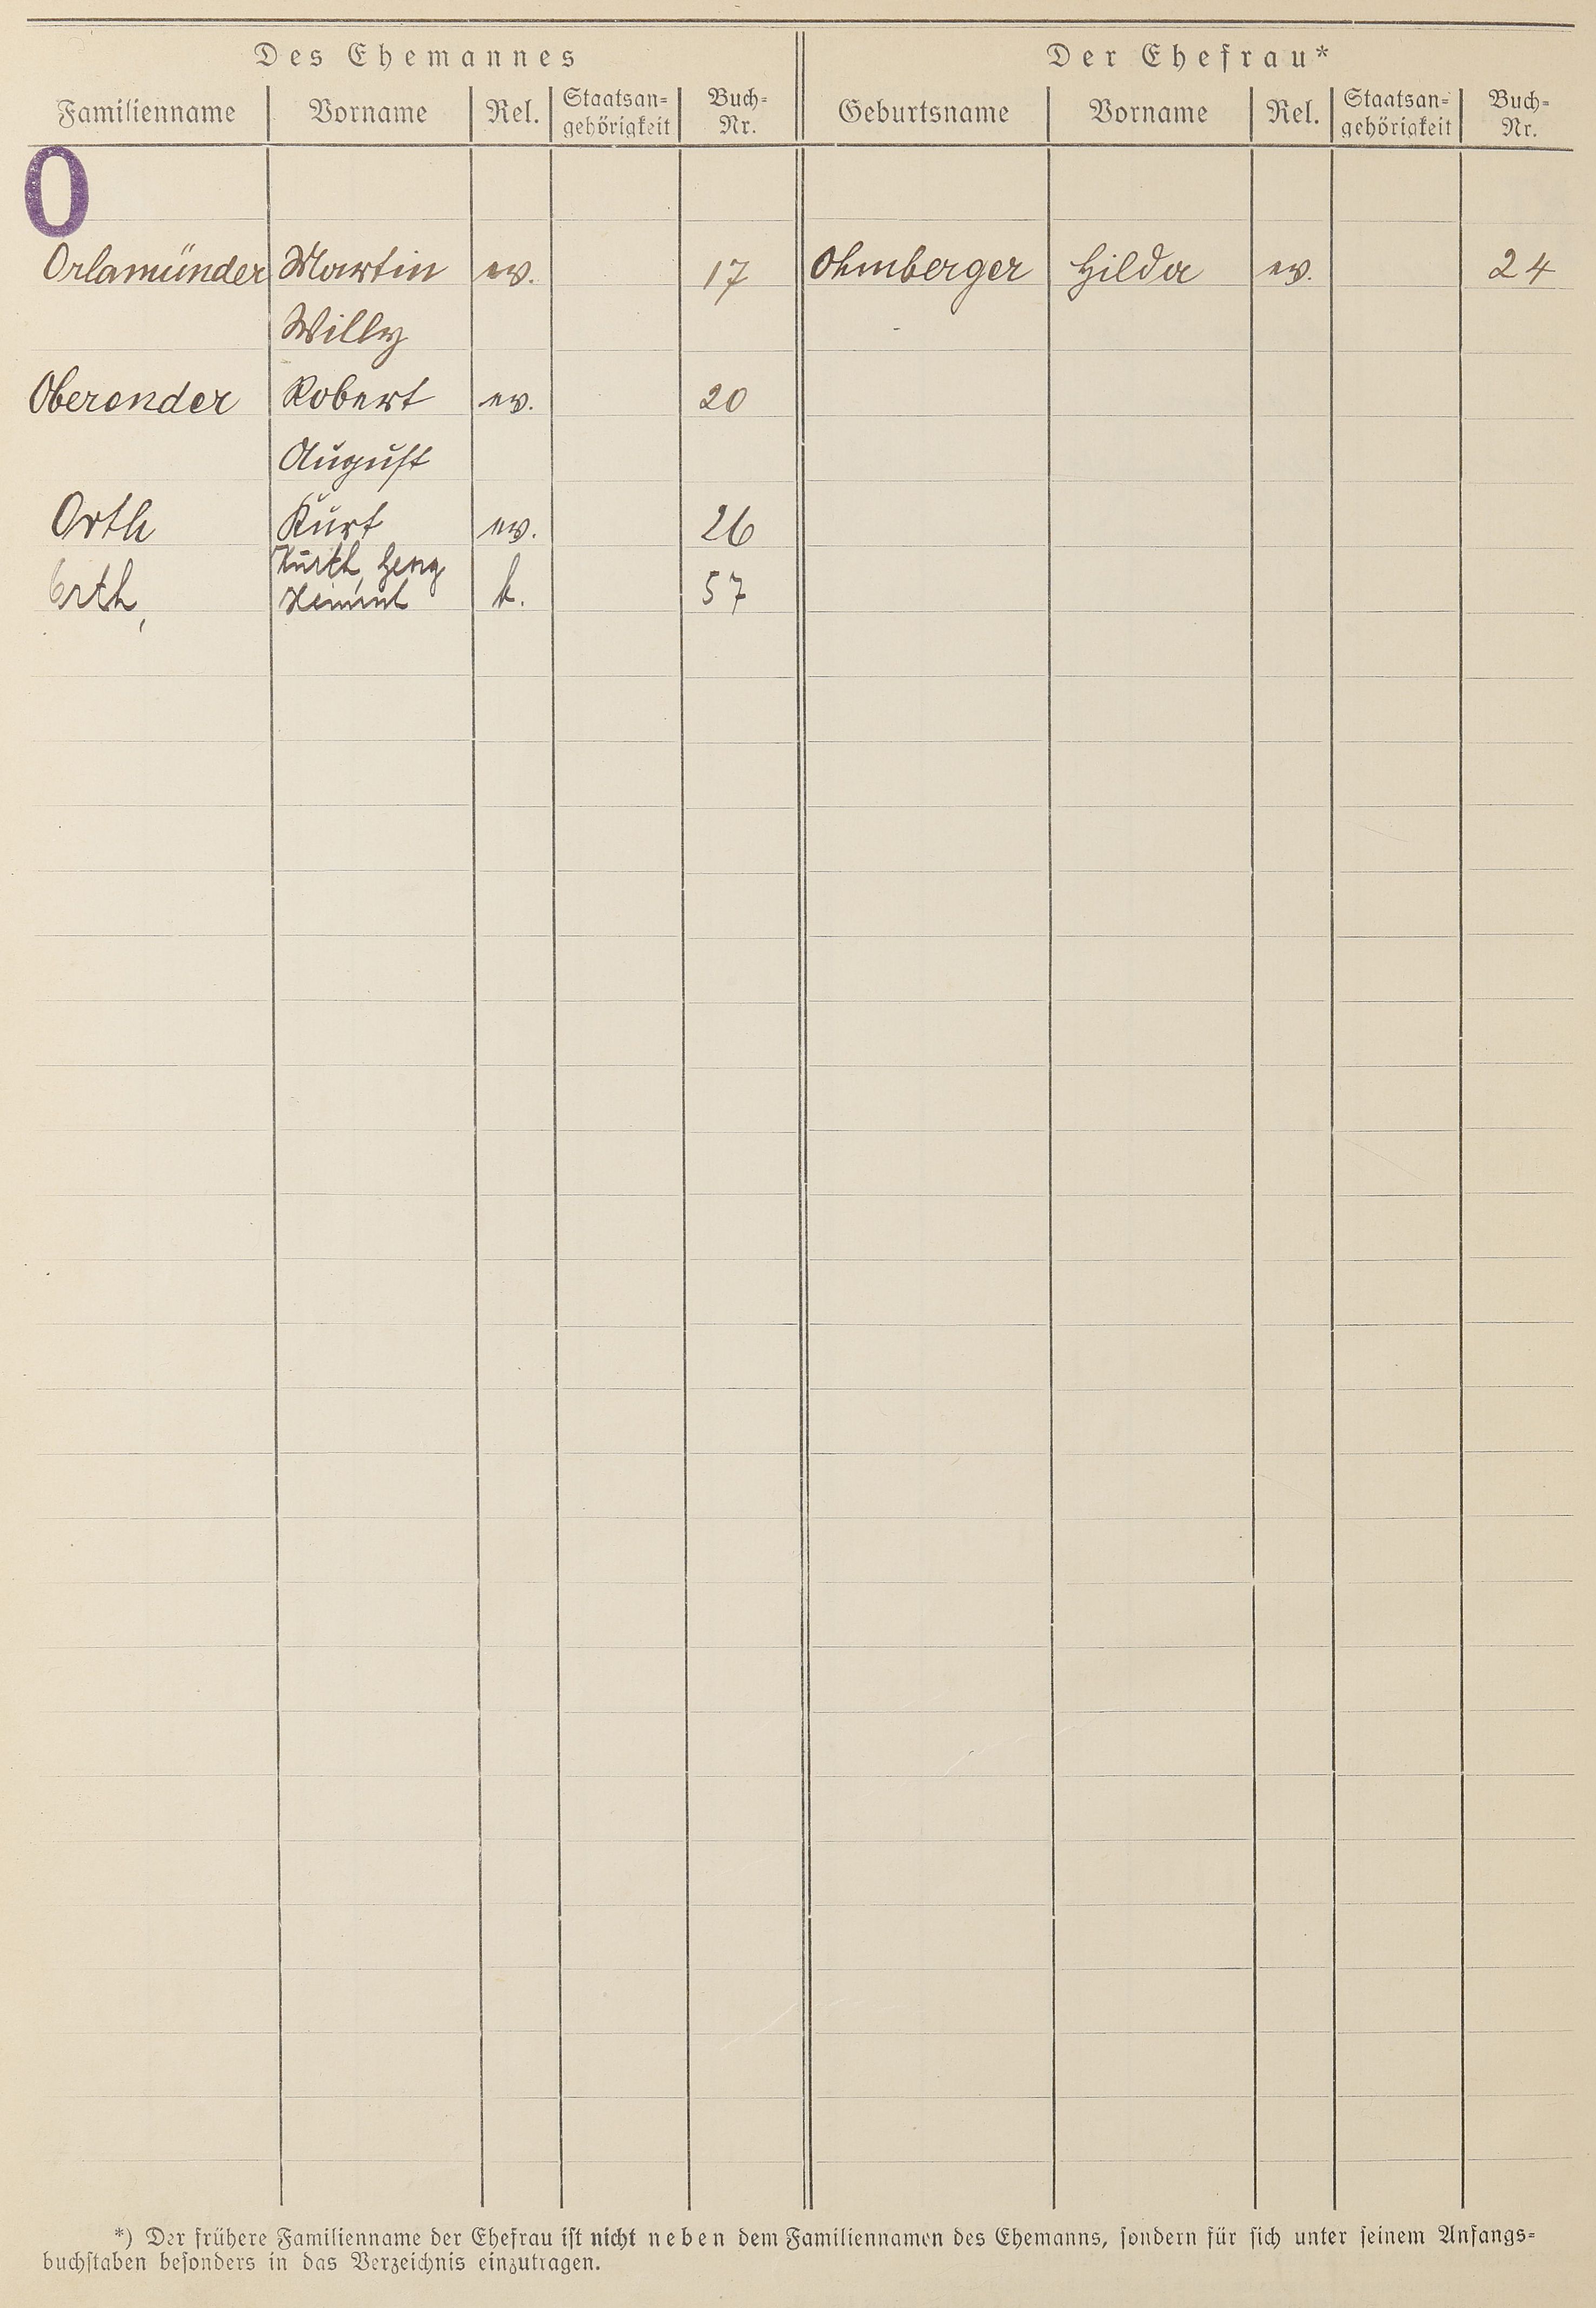 Des Ehemannes Der Ehefrau*
Familienname Vorname Rel. Staatsan- Buch- Geburtsname Vorname Rel. Staatsan- Buch-
gehörigkeit Nr. gehörigkeit Nr.
O
Orlamünder Martin ev. 17 Ohmberger Hilda ev. 24
Willy
Oberender Robert ev. 20
August
Orth Kurt ev. 26
Orth, k. 57
*) Der frühere Familienname der Ehefrau ist nicht neben dem Familiennamen des Ehemanns, sondern für sich unter seinem Anfangs-
buchstaben besonders in das Verzeichnis einzutragen.